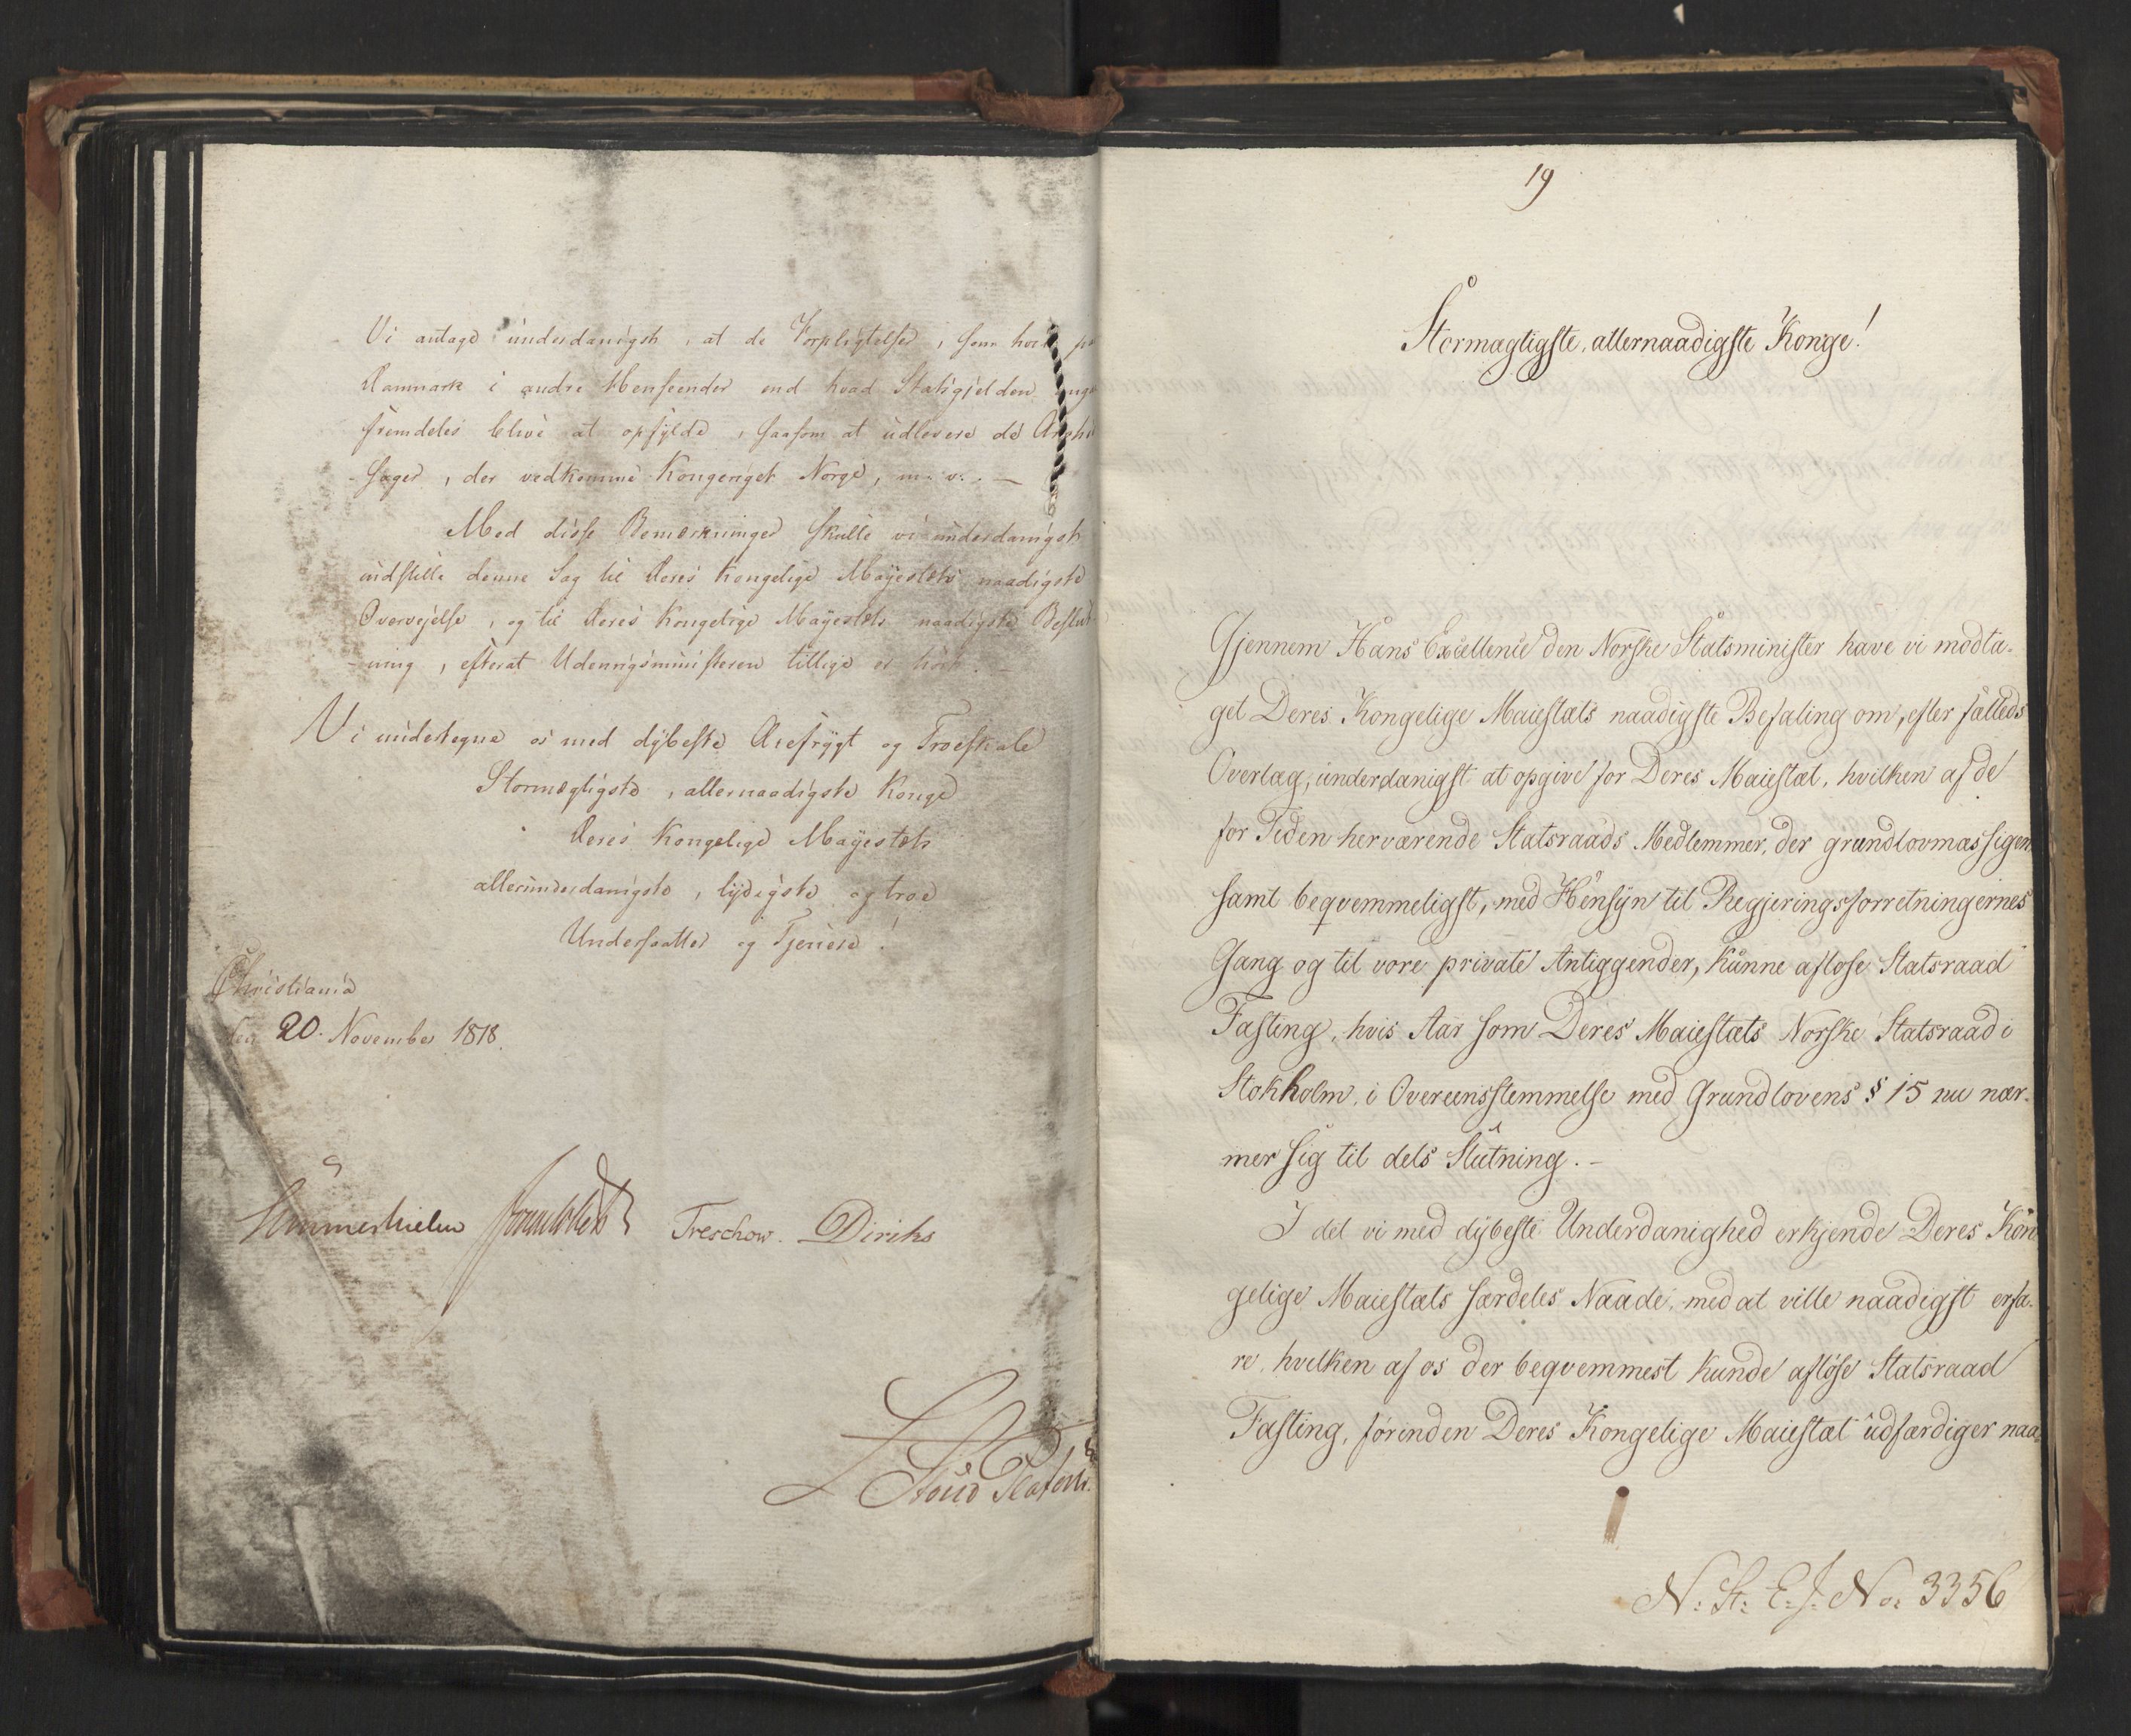 Vi antage underdanigst, at de Forpligtelser, som hvile paa
Danmark i andre Henseender end hvad Statsgjelden
fremdeles blive at opfylde, saasom at udlevere de
Sager, der vedkomme Kongeriget Norge, m. v. . —
Med disse Bemærkninger skulle vi underdanigst
indstille denne Sag til Deres Kongelige Mayestæts naadigste
Overvejelse, og til Deres Kongelige Mayestæts naadigste Beslut-
-ning, efterat Udenrigsministeren tillige er hørt. —
Vi undertegne os med dybeste Ærefrygt og Troeskab
Stormægtigste, allernaadigste Konge
Deres Kongelige Mayestæts
allerunderdanigste, lydigste og troe
Undersaatter og Tjenere!
Christiania
den 20. November 1818.
Sommerhielm Treschow. Diriks
19
Stormægtigste, allernaadigste Konge!
Gjennem Hans Excellence den Norske Statsminister have vi modta-
get Deres Kongelige Maiestæts naadigste Befaling om, efter fælleds
Overlæg, underdanigst at opgive for Deres Maiestæt, hvilken af de
for Tiden herværende Statsraads Medlemmer, der grundlovmæssigen
samt beqvemmeligst, med Hensyn til Regjeringsforretningernes
Gang og til vore private Anliggender, kunne afløse Statsraad
Fasting, hvis Aar som Deres Maiestæts Norske Statsraad i
Stokholm, i Overeensstemmelse med Grundlovens § 15 nu nær-
mer sig til dets Slutning. —
I det vi med dybeste Underdanighed erkjende Deres Kon
gelige Maiestæts særdeles Naade, med at ville naadigst erfa-
re, hvilken af os der beqvemmest kunde afløse Statsraad
Fasting, førinden Deres Kongelige Maiestæt udfærdiger naa-
N: St: E: J: No: 3356